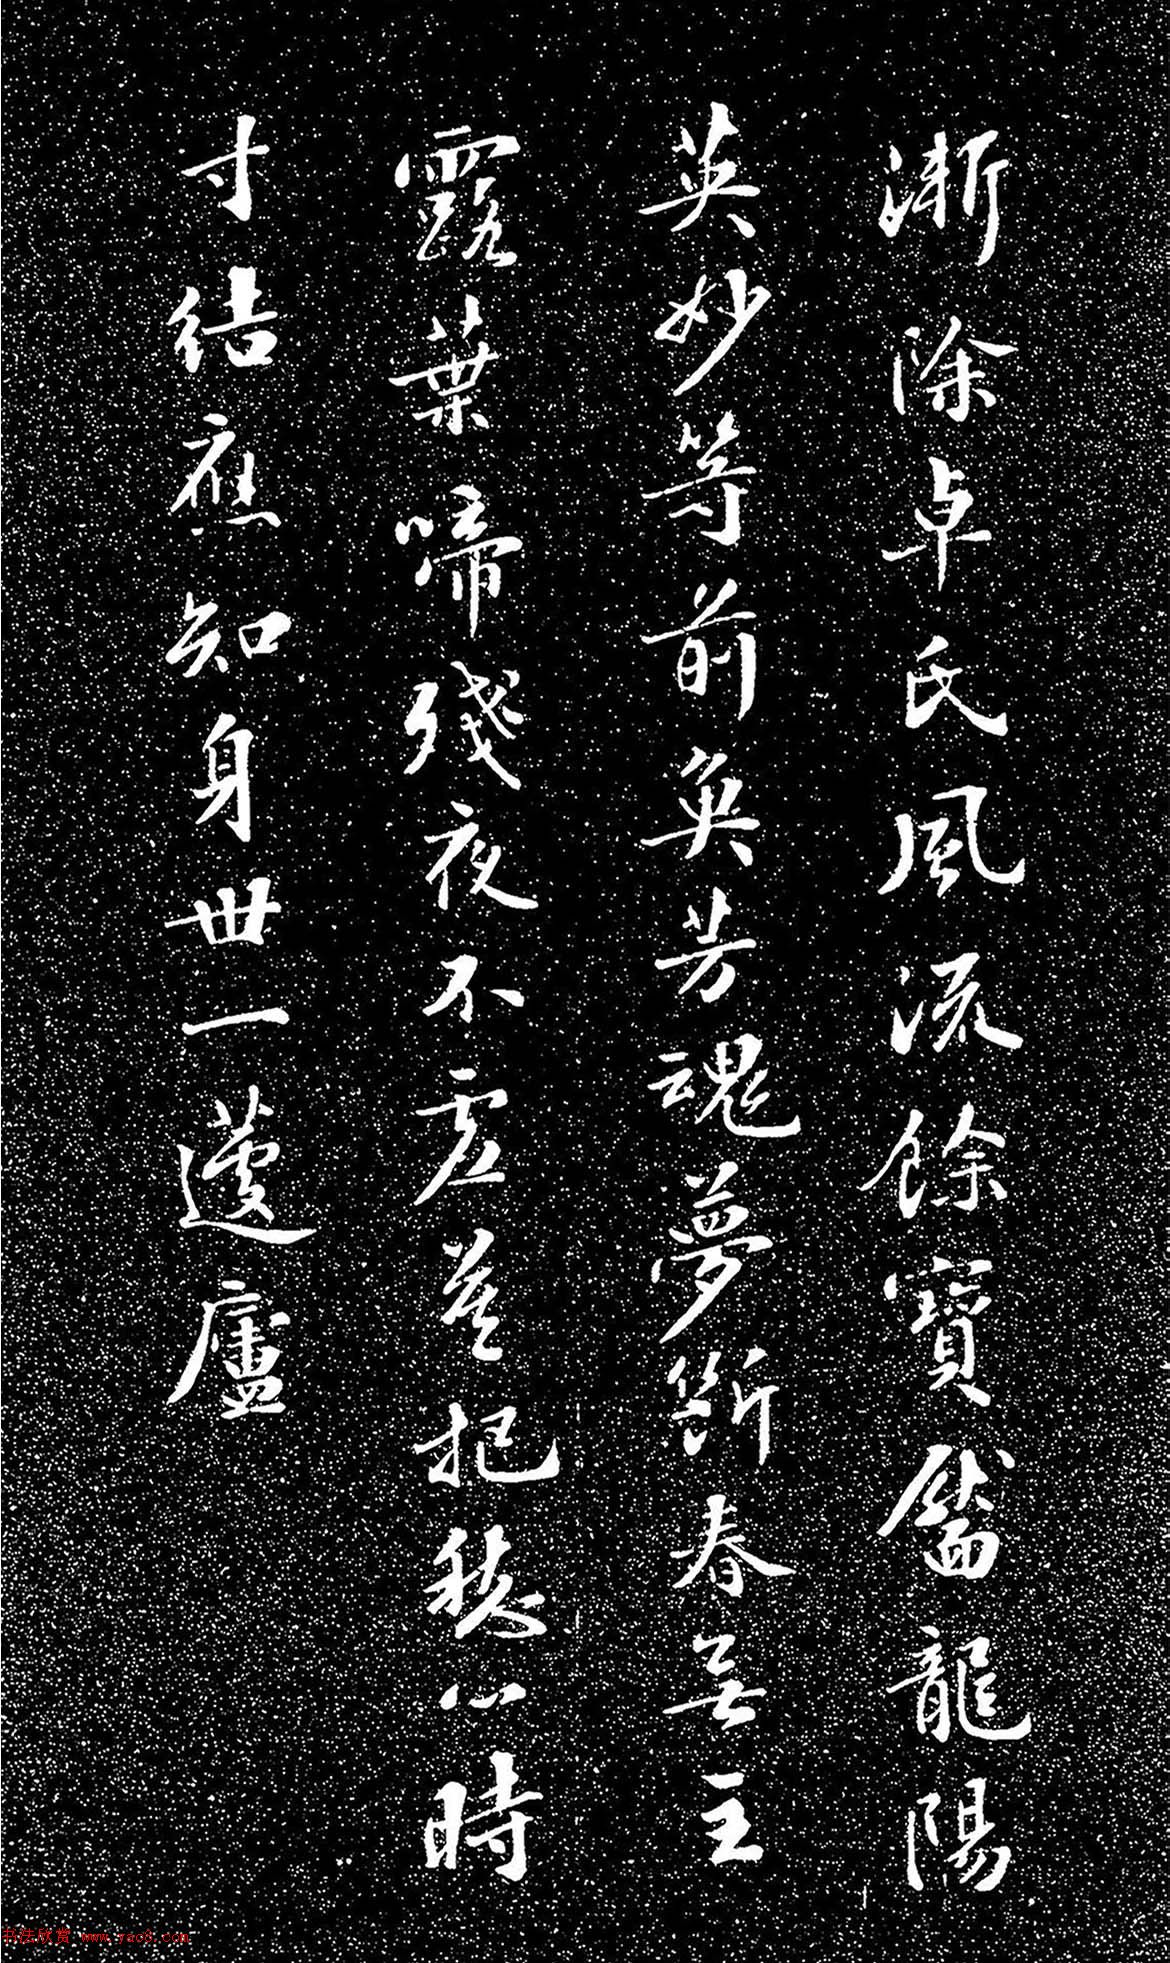 漸除卓氏風流餘寶靨龍陽
英妙等前魚芳魂夢斷春無主
露葉啼殘夜不虛莫把愁心時
寸結應知身世一蘧廬
书法欣赏 www.yac8.com